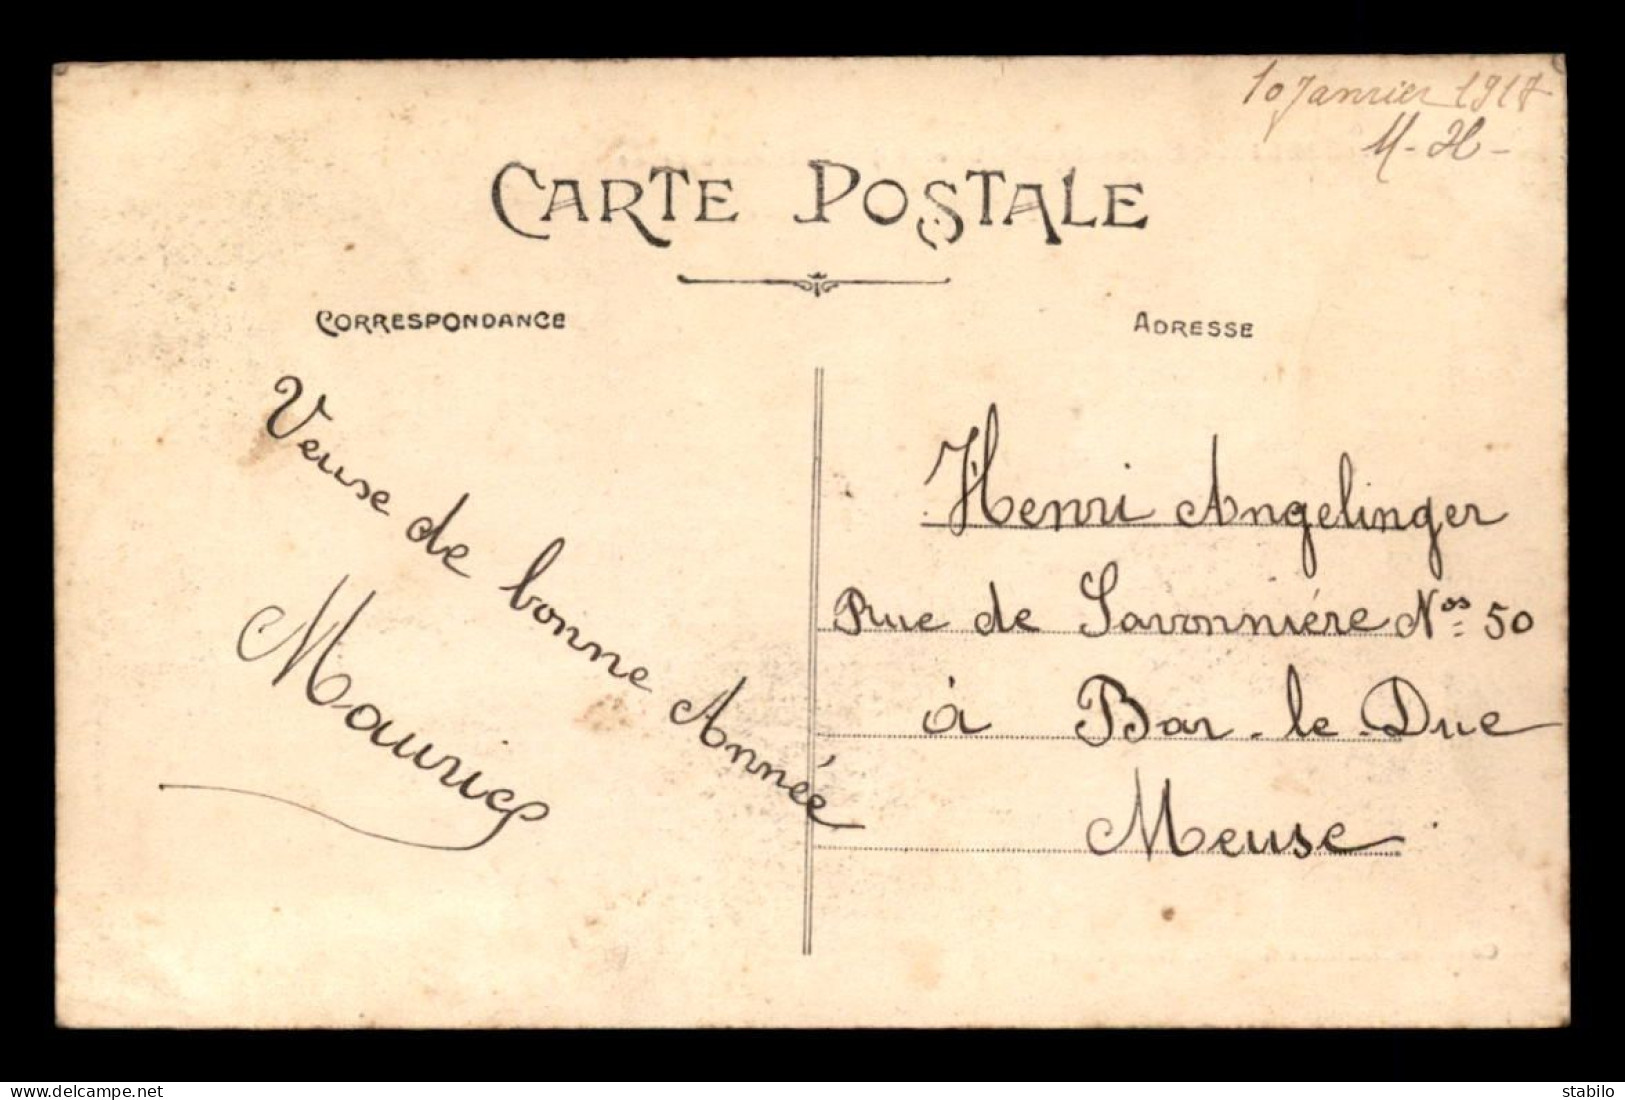 10 Janvier 1917
M - H -
CARTE POSTALE
CORRESPONDANCE
ADRESSE
Veuse de bonne Année
Maurice
Henri Angelinger
Rue de Savonniére Nos 50
à Bar-le-Duc
Meuse.
delcampe.net
stabilo